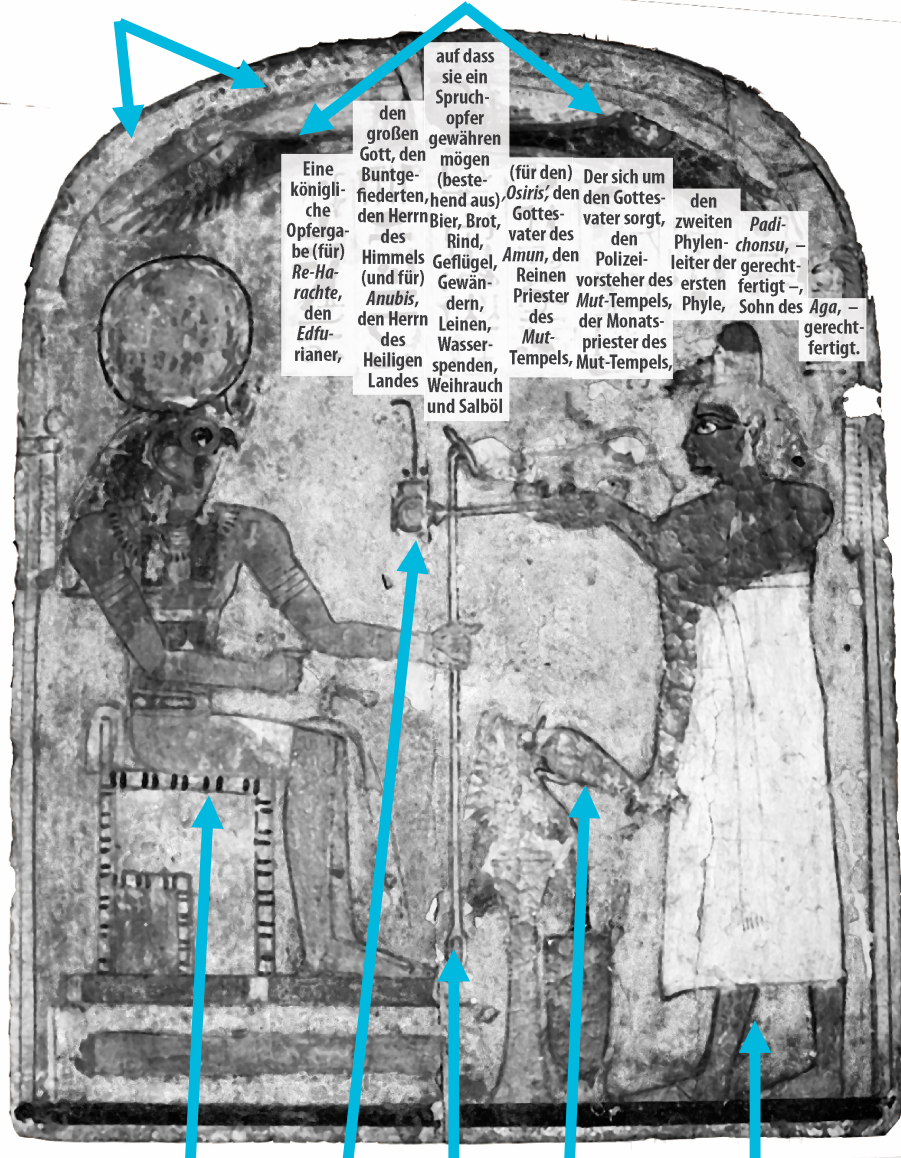 Eine
königli-
che
Opferga-
be (für)
Re-Ha-
rachte,
den
Edfu-
rianer,
den
großen
Gott, den
Buntge-
fiederten,
den Herrn
des
Himmels
(und für)
Anubis,
den Herrn
des
Heiligen
Landes
auf dass
sie ein
Spruch-
opfer
gewähren
mögen
(beste-
hend aus)
Bier, Brot,
Rind,
Geflügel,
Gewän-
dern,
Leinen,
Wasser-
spenden,
Weihrauch
und Salböl
(für den)
‚Osiris‘, den
Gottes-
vater des
Amun, den
Reinen
Priester
des
Mut-
Tempels,
Der sich um
den Gottes-
vater sorgt,
den
Polizei-
vorsteher des
Mut-Tempels,
der Monats-
priester des
Mut-Tempels,
den
zweiten
Phylen-
leiter der
ersten
Phyle,
Padi-
chonsu, –
gerecht-
fertigt –,
Sohn des
Aga, –
gerecht-
fertigt.